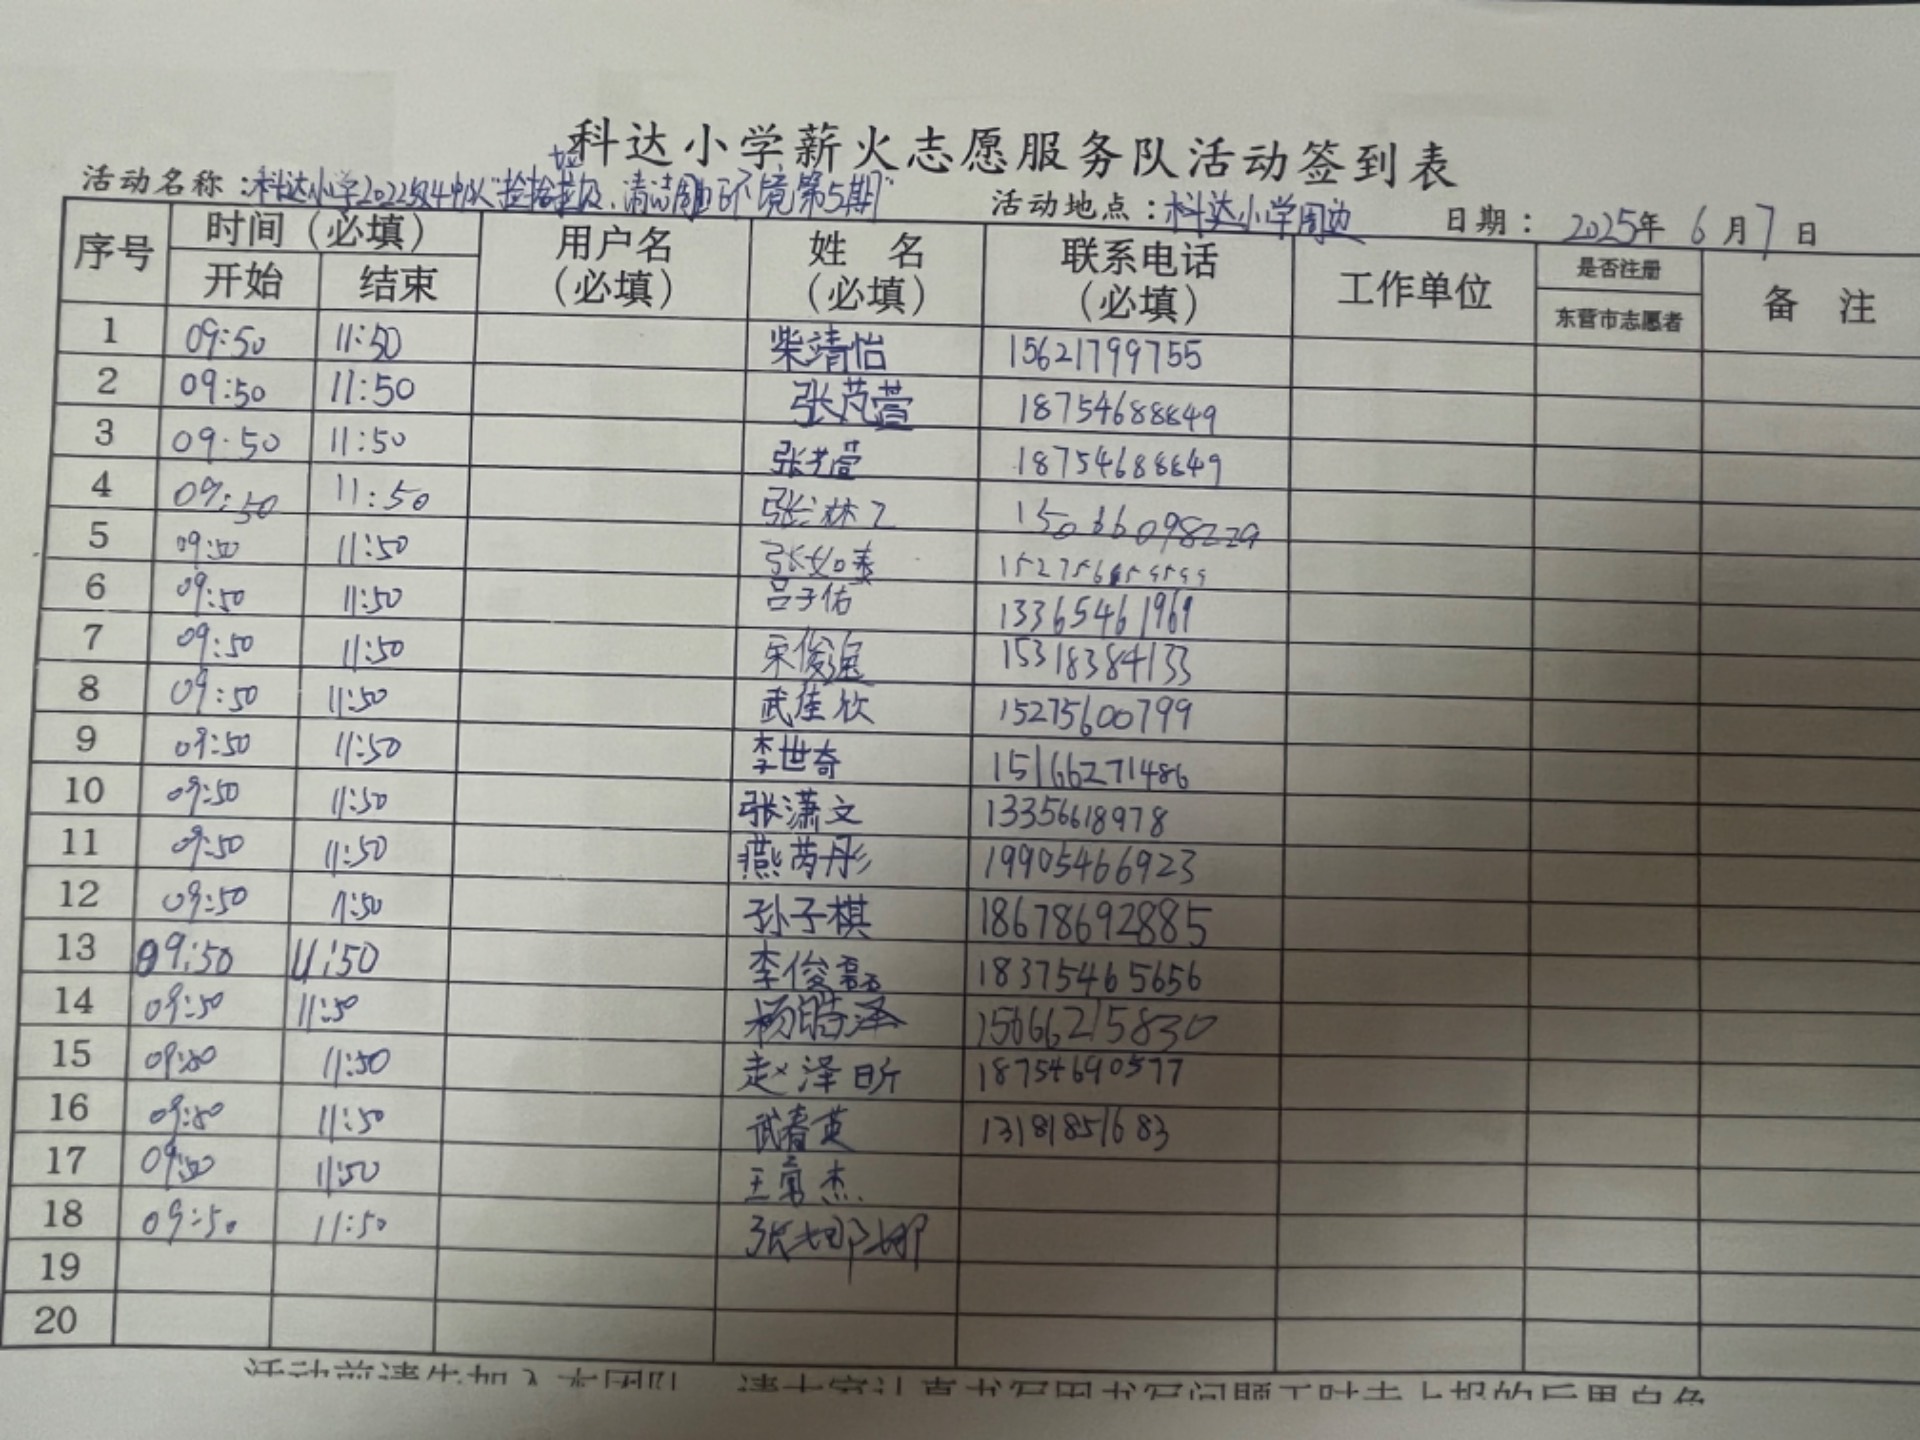 科达小学薪火志愿服务队活动签到表
活动名称：科达小学2022级4中队"捡拾垃圾，清洁周边环境第5期" 活动地点：科达小学周边 日期：2025年6月7日
序号 时间（必填） 用户名（必填） 姓 名（必填） 联系电话（必填） 工作单位 是否注册 备 注
开始 结束 东营市志愿者
1 09:50 11:50 柴靖怡 15621799755
2 09:50 11:50 张芃萱 18754688849
3 09:50 11:50 张 萱 18754688849
4 09:50 11:50 张 15066098229
5 09:50 11:50 张如
6 09:50 11:50 吕子佑 13365461969
7 09:50 11:50 宋俊逸 15318384133
8 09:50 11:50 武佳欣 15275600799
9 09:50 11:50 李世奇 15166271486
10 09:50 11:50 张潇文 13356618978
11 09:50 11:50 燕芮彤 19905466923
12 09:50 11:50 孙子棋 18678692885
13 09:50 11:50 李俊磊 18375465656
14 09:50 11:50 杨皓泽 15666215830
15 09:50 11:50 赵泽昕 18754690577
16 09:50 11:50 武春英 13181851683
17 09:50 11:50 王 杰
18 09:50 11:50 张娜娜
19
20